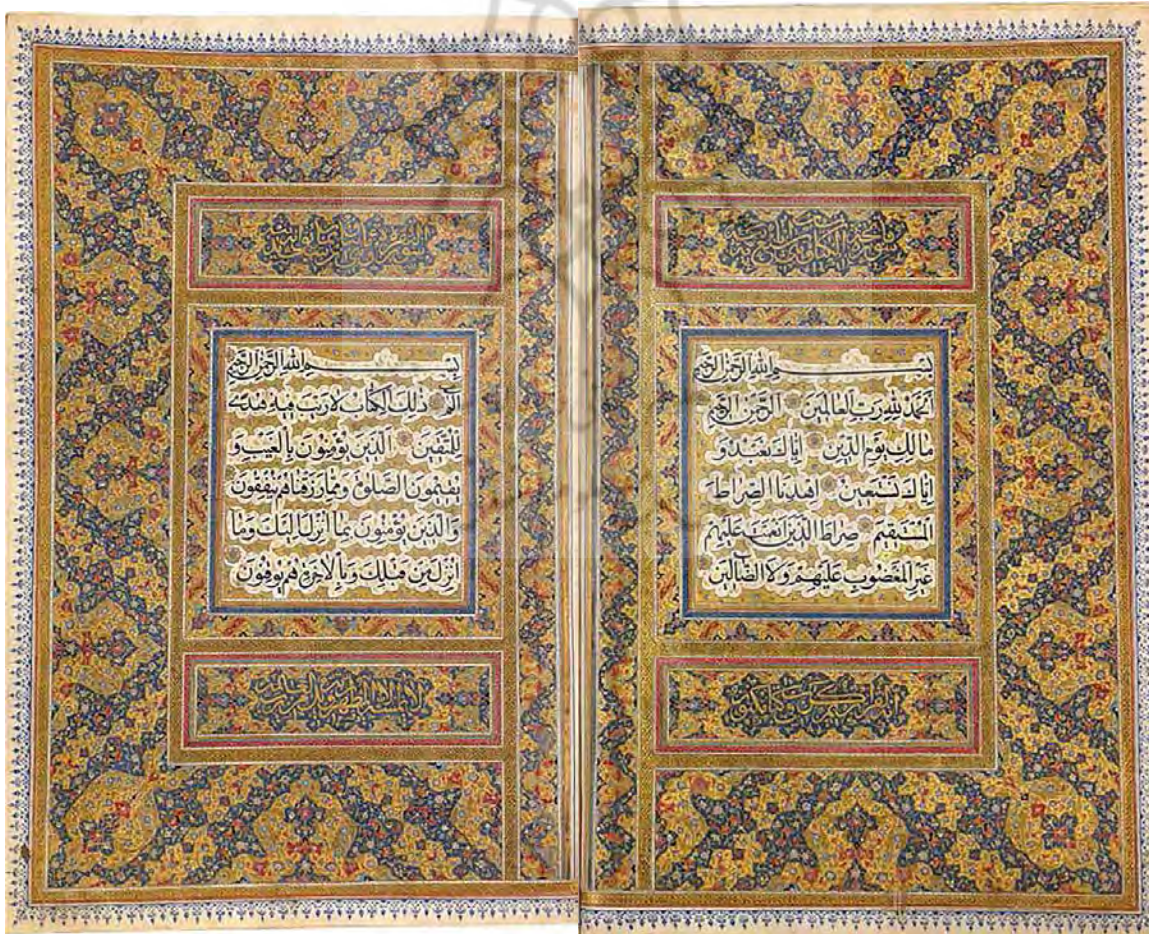 بِسْمِ اللهِ الرَّحْمٰنِ الرَّحِيمِ
اَلْحَمْدُ لِلّٰهِ رَبِّ الْعَالَمِينَ الرَّحْمٰنِ الرَّحِيمِ
مَالِكِ يَوْمِ الدِّينِ اِيَّاكَ نَعْبُدُ وَ
اِيَّاكَ نَسْتَعِينُ اِهْدِنَا الصِّرَاطَ
الْمُسْتَقِيمَ صِرَاطَ الَّذِينَ اَنْعَمْتَ عَلَيْهِمْ
غَيْرِ الْمَغْضُوبِ عَلَيْهِمْ وَلَا الضَّالِّينَ
اِنَّهُ لَقُرْآنٌ كَرِيمٌ فِي كِتَابٍ مَكْنُونٍ
بِسْمِ اللهِ الرَّحْمٰنِ الرَّحِيمِ
الٓمٓ ذٰلِكَ الْكِتَابُ لَا رَيْبَ فِيهِ هُدًى
لِلْمُتَّقِينَ الَّذِينَ يُؤْمِنُونَ بِالْغَيْبِ وَ
يُقِيمُونَ الصَّلٰوةَ وَمِمَّا رَزَقْنَاهُمْ يُنْفِقُونَ
وَالَّذِينَ يُؤْمِنُونَ بِمَا اُنْزِلَ اِلَيْكَ وَمَا
اُنْزِلَ مِنْ قَبْلِكَ وَبِالْاٰخِرَةِ هُمْ يُوقِنُونَ